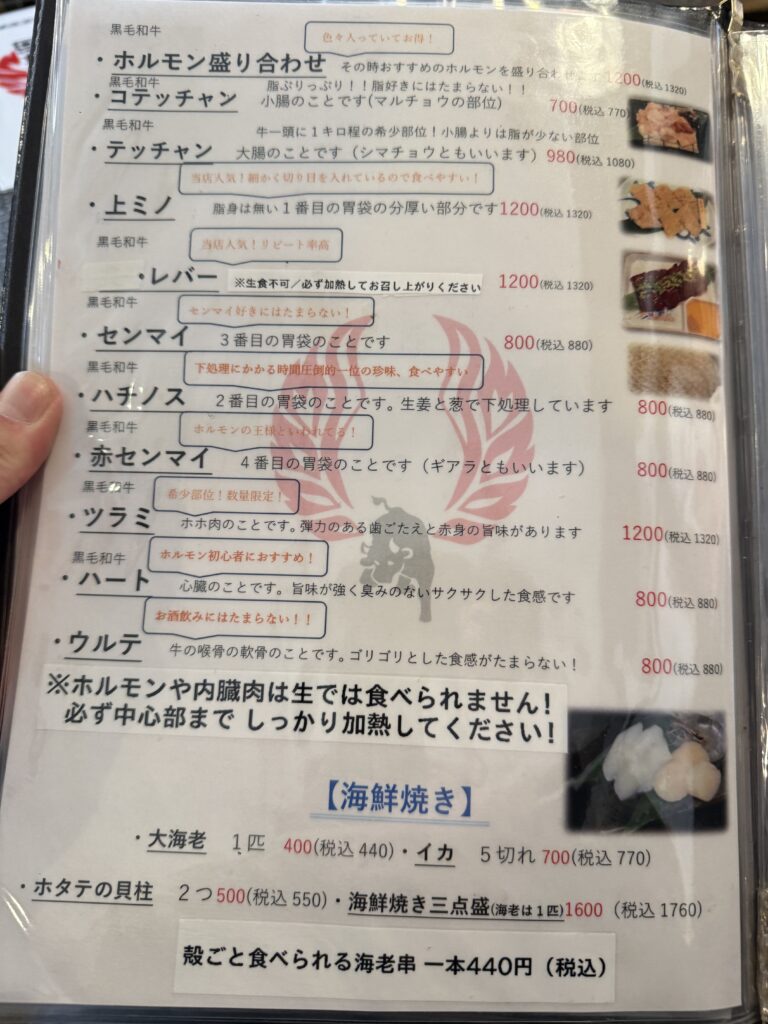 黒毛和牛
色々入っていてお得！
・ホルモン盛り合わせ その時おすすめのホルモンを盛り合わせ 1200(税込 1320)
黒毛和牛
脂ぷりっぷり！！脂好きにはたまらない！！
・コテッチャン 小腸のことです(マルチョウの部位) 700(税込 770)
黒毛和牛
牛一頭に１キロ程の希少部位！小腸よりは脂が少ない部位
・テッチャン 大腸のことです（シマチョウともいいます）980(税込 1080)
当店人気！細かく切り目を入れているので食べやすい！
・上ミノ 脂身は無い１番目の胃袋の分厚い部分です1200(税込 1320)
黒毛和牛
当店人気！リピート率高
・レバー ※生食不可／必ず加熱してお召し上がりください 1200(税込 1320)
黒毛和牛
センマイ好きにはたまらない！
・センマイ ３番目の胃袋のことです 800(税込 880)
黒毛和牛
下処理にかかる時間圧倒的一位の珍味、食べやすい
・ハチノス ２番目の胃袋のことです。生姜と葱で下処理しています 800(税込 880)
黒毛和牛
ホルモンの王様といわれてる！
・赤センマイ ４番目の胃袋のことです（ギアラともいいます） 800(税込 880)
黒毛和牛
希少部位！数量限定！
・ツラミ ホホ肉のことです。弾力のある歯ごたえと赤身の旨味があります 1200(税込 1320)
黒毛和牛
ホルモン初心者におすすめ！
・ハート 心臓のことです。旨味が強く臭みのないサクサクした食感です 800(税込 880)
お酒飲みにはたまらない！！
・ウルテ 牛の喉骨の軟骨のことです。ゴリゴリとした食感がたまらない！ 800(税込 880)
※ホルモンや内臓肉は生では食べられません！
必ず中心部まで しっかり加熱してください！
【海鮮焼き】
・大海老 １匹 400(税込 440)・イカ ５切れ 700(税込 770)
・ホタテの貝柱 ２つ500(税込 550)・海鮮焼き三点盛(海老は１匹)1600（税込 1760)
殻ごと食べられる海老串 一本440円（税込）